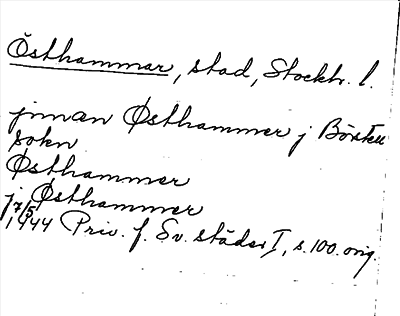 Östhammar, stad, Stockh. l.
jnnan Østhammer j Börsteu
sokn
Østhammer
j Østhammer
7/5 1444 Priv. f. Sv. städer I, s. 100. orig.